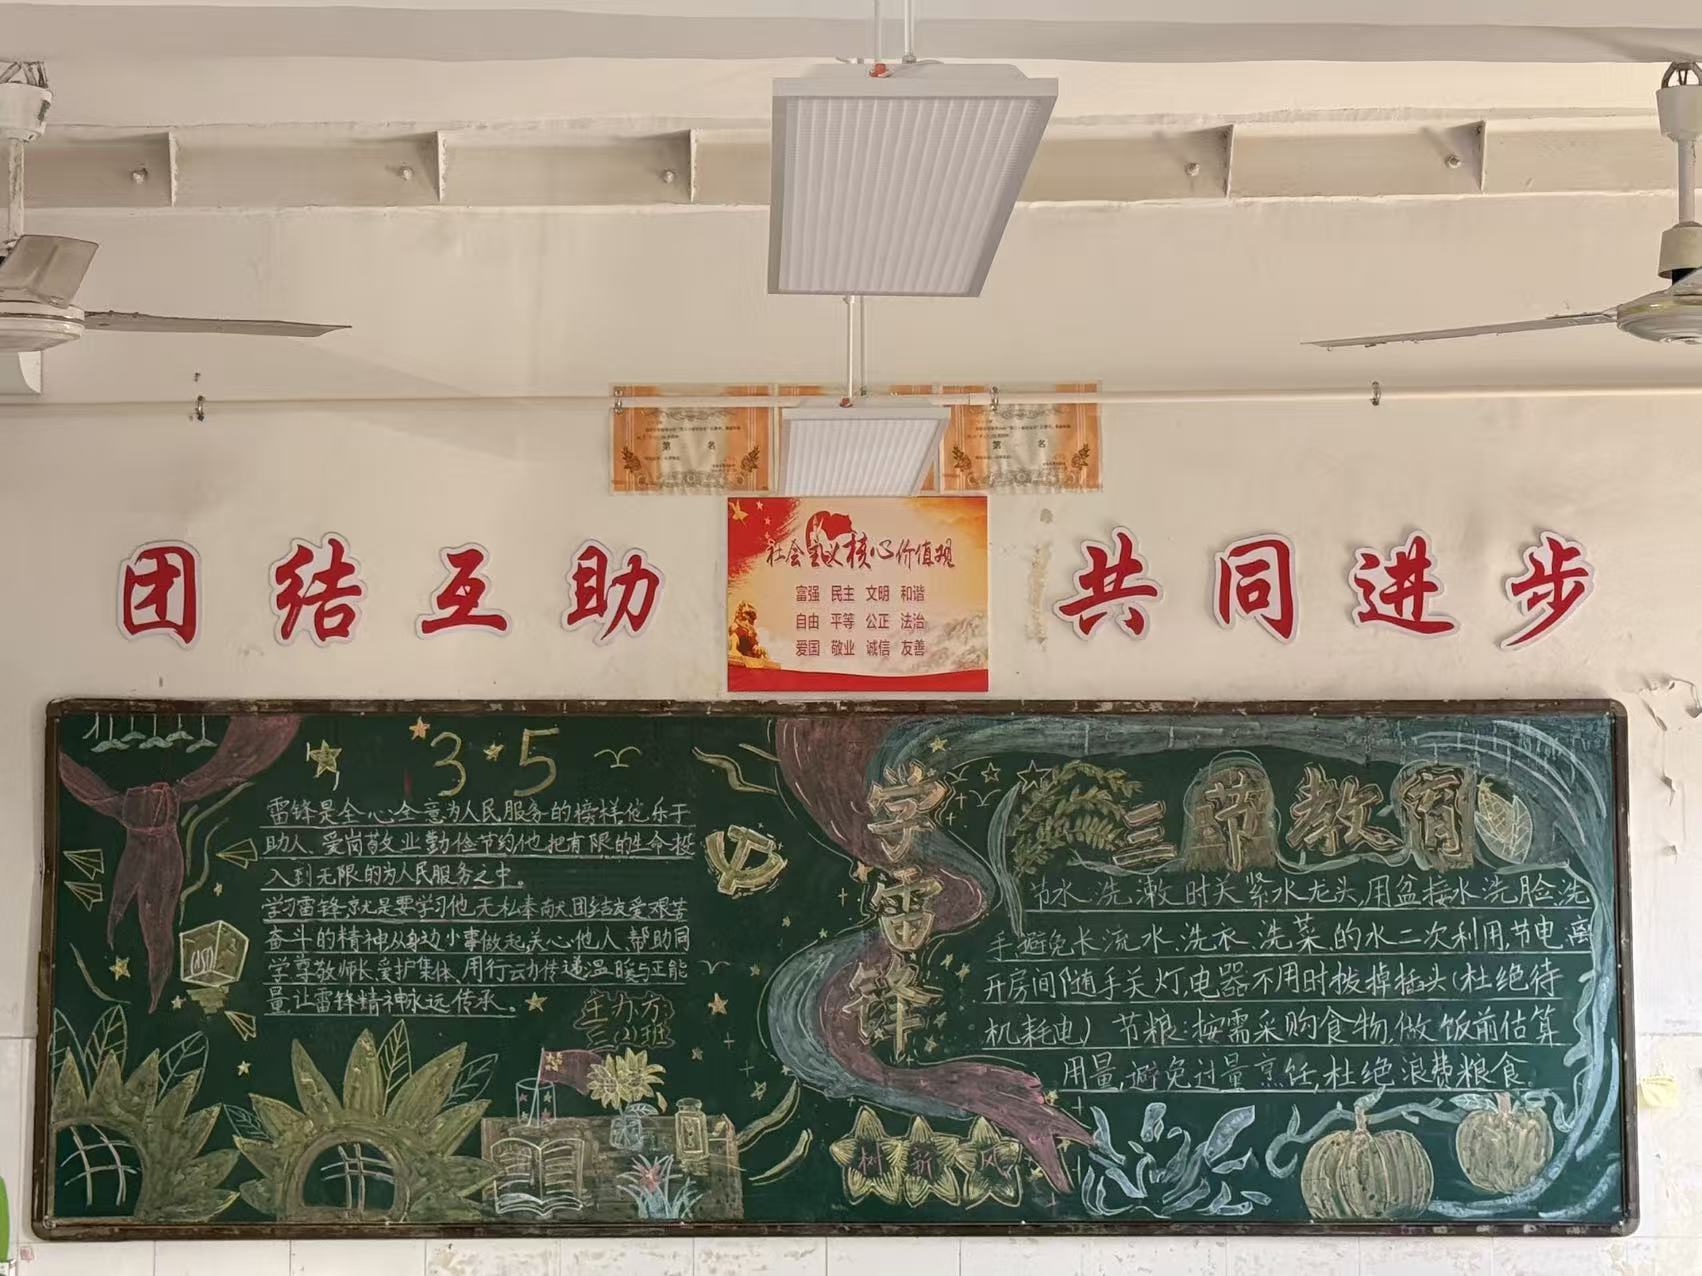 第 名
第 名
团结互助
社会主义核心价值观
富强 民主 文明 和谐
自由 平等 公正 法治
爱国 敬业 诚信 友善
共同进步
3·5
雷锋是全心全意为人民服务的榜样他乐于
助人、爱岗敬业勤俭节约他把有限的生命投
入到无限的为人民服务之中。
学习雷锋,就是要学习他无私奉献团结友爱艰苦
奋斗的精神从身边小事做起,关心他人,帮助同
学尊敬师长,爱护集体,用行云力传递温暖与正能
量,让雷锋精神永远传承。
主办方
三(2)班
学雷锋
树新风
三节教育
节水:洗漱时关紧水龙头,用盆接水洗脸、洗
手,避免长流水,洗衣、洗菜的水二次利用,节电:离
开房间随手关灯,电器不用时拨掉插头(杜绝待
机耗电) 节粮:按需采购食物,做饭前估算
用量,避免过量烹饪,杜绝浪费粮食。